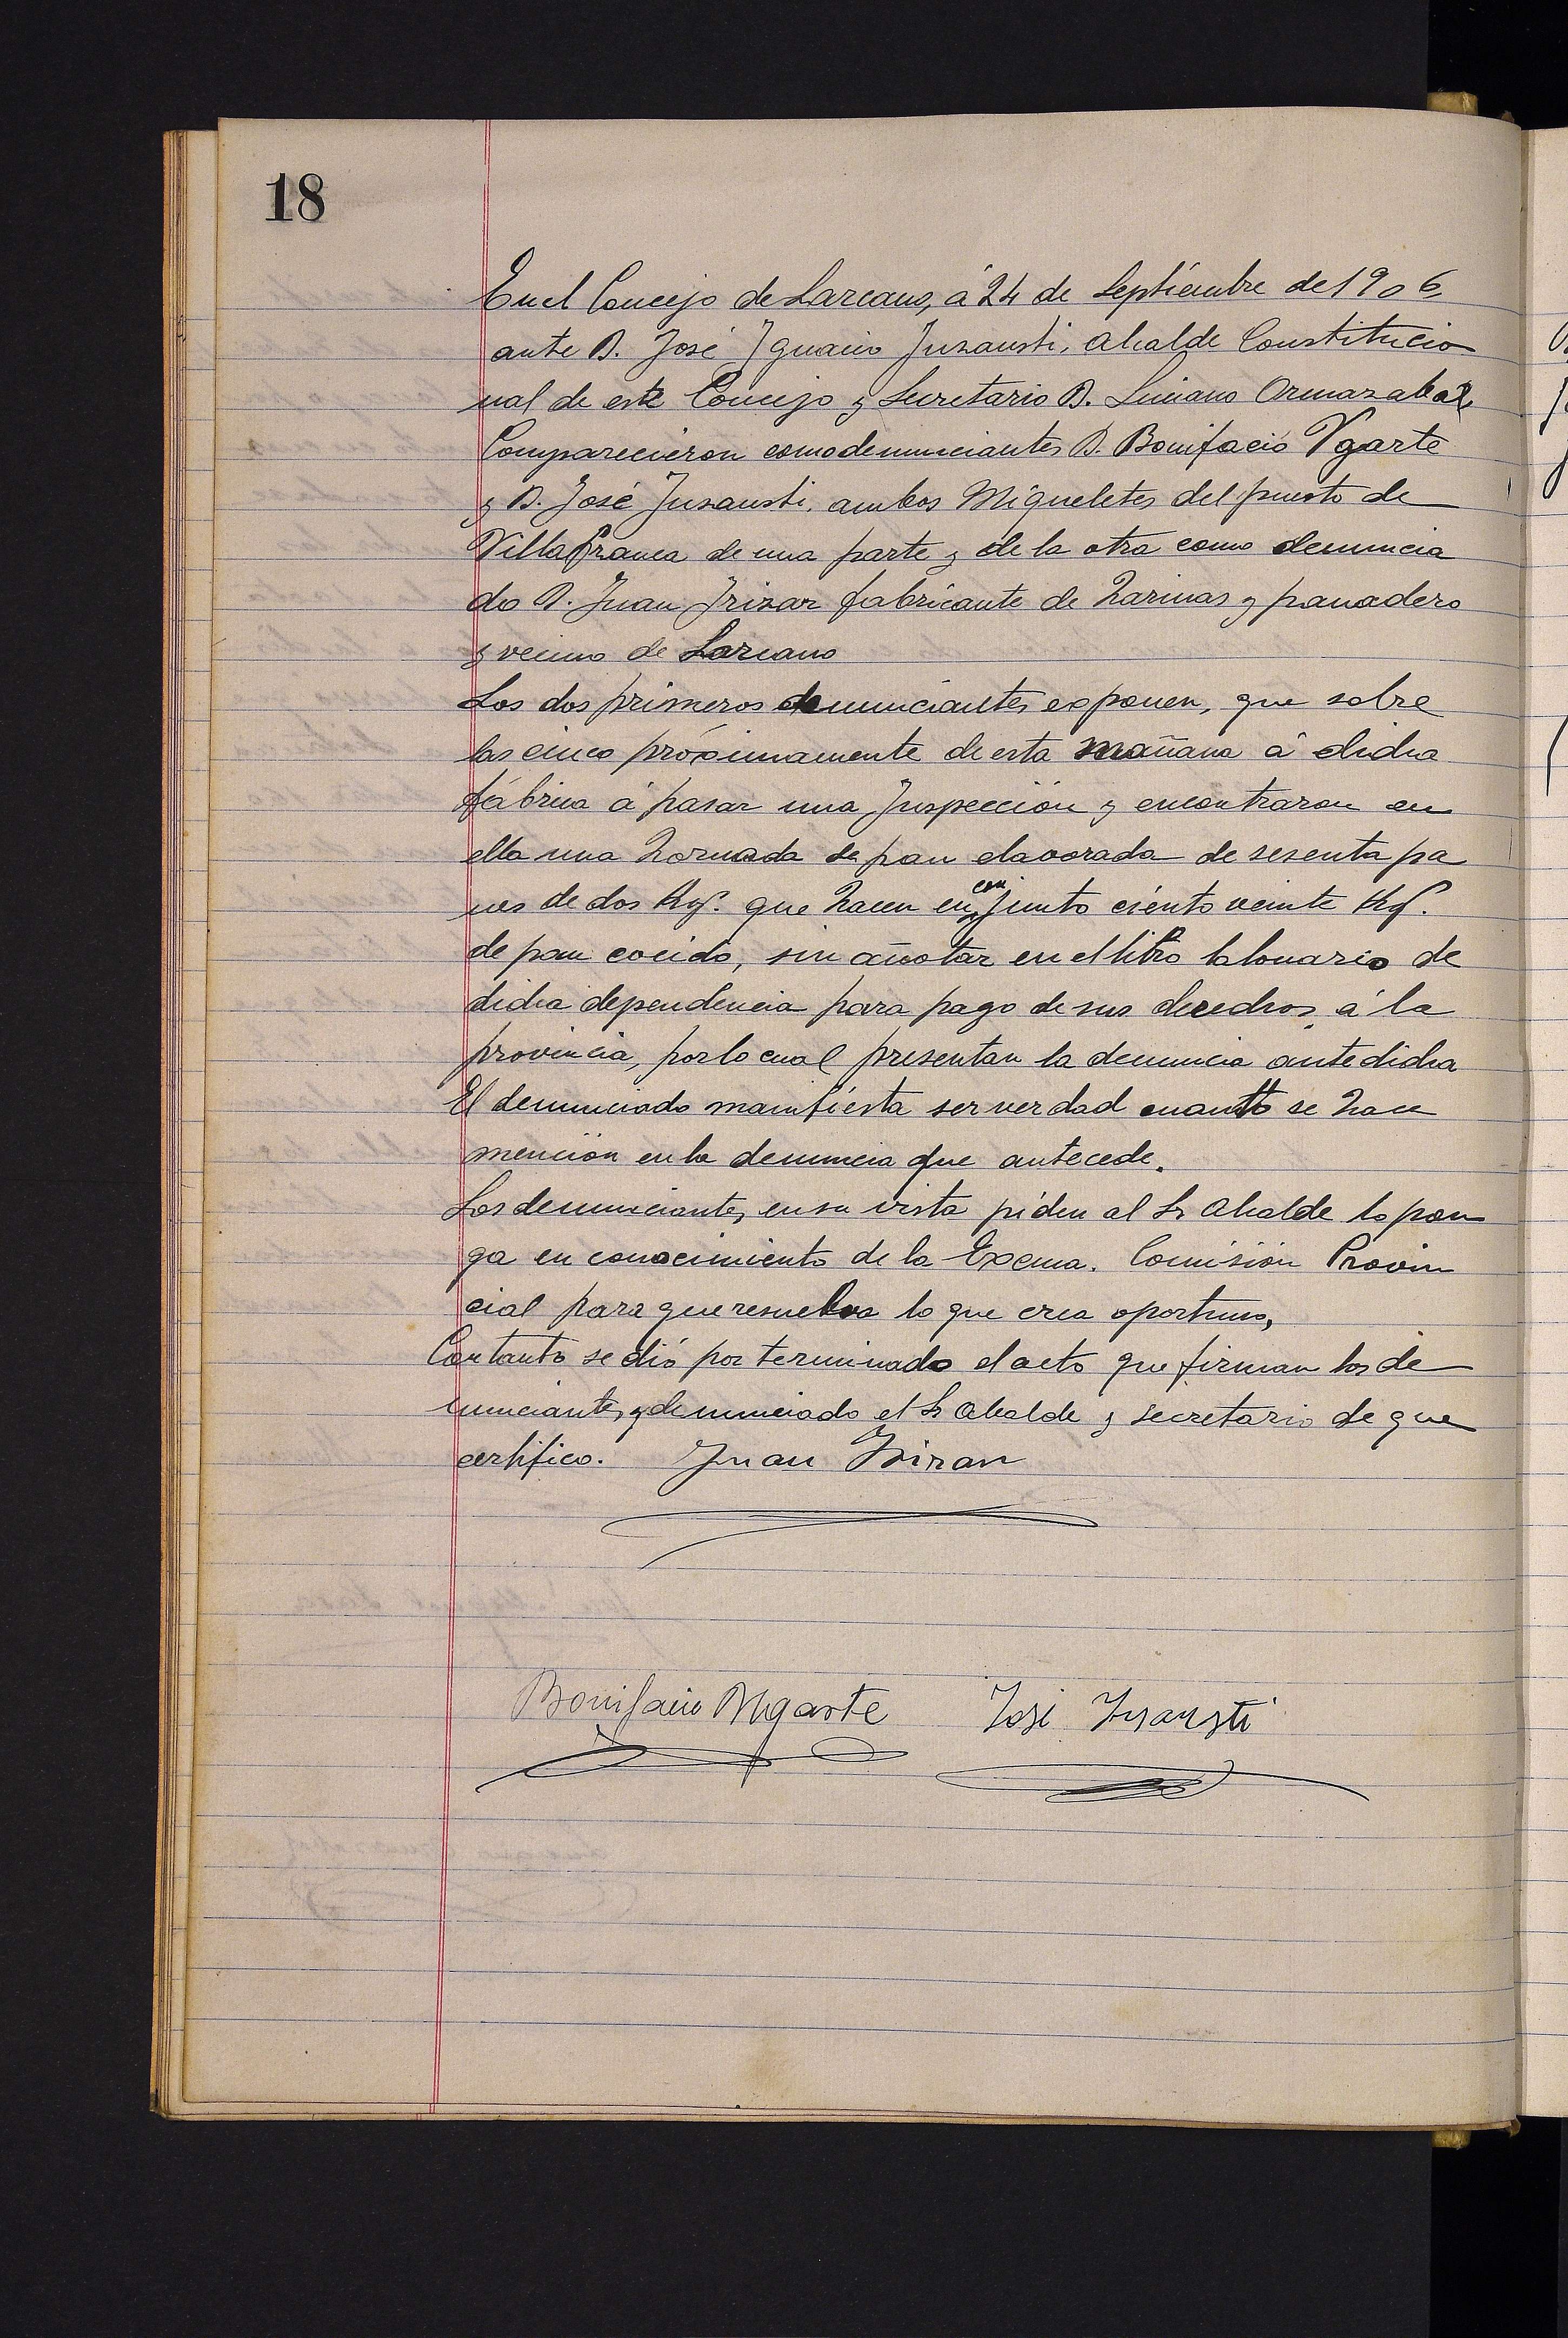 18
En el Concejo de Lazcano, á 24 de Septiembre de 1906,
ante D. José Ignacio Inzausti, Alcalde Constitucio
nal de este Concejo y Secretario D. Luciano Ormazabal,
Comparecieron como denunciantes D. Bonifacio Ygarte
y D. José Inzausti, ambos Miqueletes del puesto de
Villafranca de una parte y de la otra como denuncia
do D. Juan Irizar fabricante de harinas y panadero
y vecino de Lazcano
Los dos primeros denunciantes exponen, que sobre
las cinco próximamente de esta mañana á dicha
fábrica á pasar una Inspección y encontraron en
ella una hornada de pan elavorada de sesenta pa
nes de dos Kg. que hacen en conjunto ciento veinte Kg.
de pan cocido, sin anotar en el libro talonario de
dicha dependencia para pago de sus derechos á la
provincia, por lo cual presentan la denuncia antedicha
El denunciado manifiesta ser verdad cuanto se hace
mención en la denuncia que antecede.
Los denunciantes, en su vista piden al Sr Alcalde lo pon
ga en conocimiento de la Excma. Comisión Provin
cial para que resuelva lo que crea oportuno,
Con tanto se dió por terminado el acto que firman los de
nunciantes, y denunciado el Sr Alcalde y secretario de que
certifico. Juan Irizar
Bonifacio Ugarte José Insausti